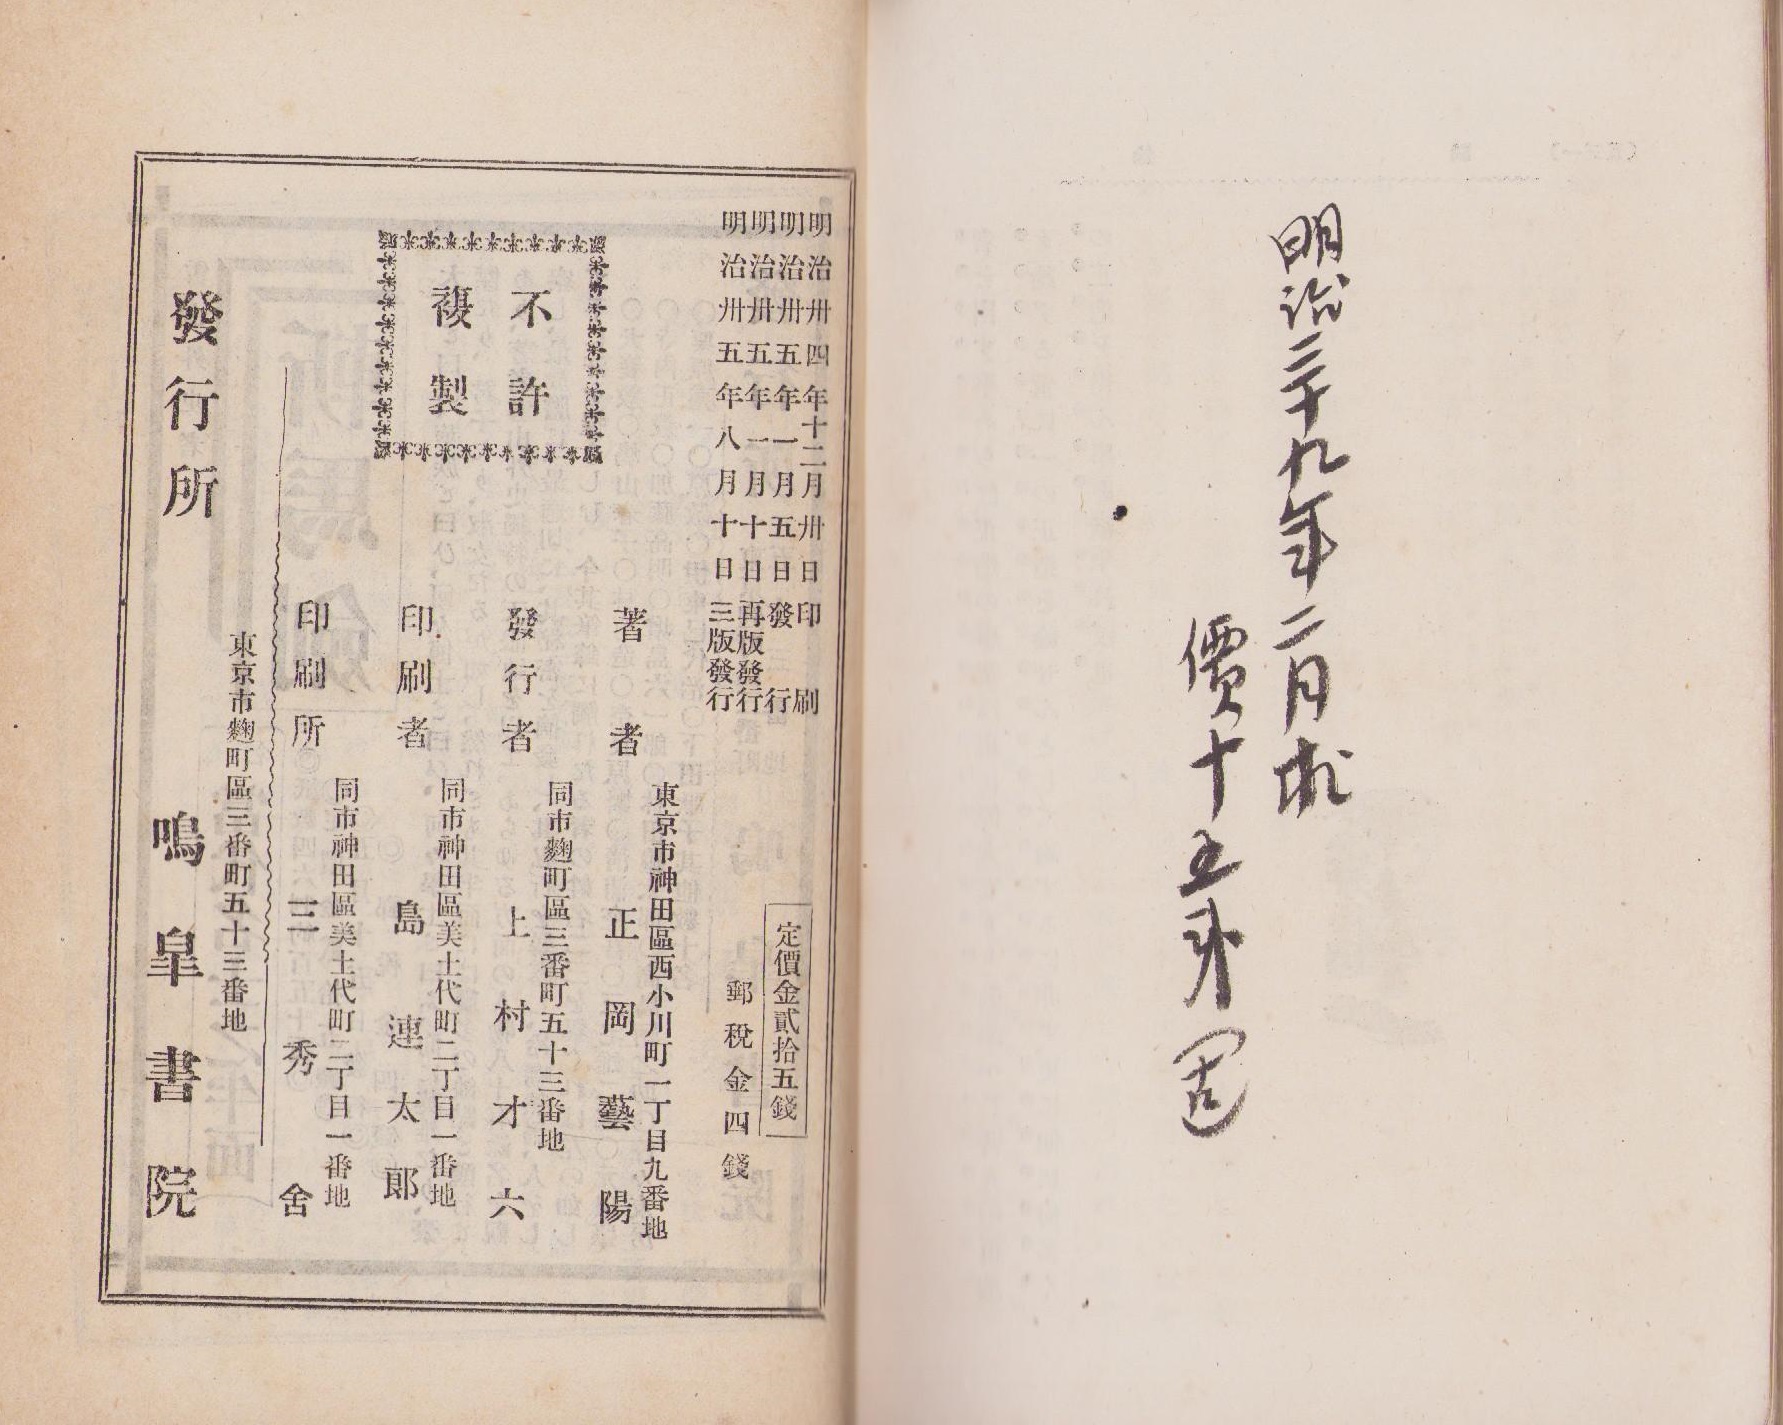 明治三十九年二月求
價十五錢
明治卅四年十二月卅日印刷
明治卅五年一月五日發行
明治卅五年一月十日再版發行
明治卅五年八月十日三版發行
定價金貳拾五錢
郵稅金四錢
不許
複製
東京市神田區西小川町一丁目九番地
著者 正岡藝陽
同市麴町區三番町五十三番地
發行者 上村才六
同市神田區美土代町二丁目一番地
印刷者 島連太郎
同市神田區美土代町二丁目一番地
印刷所 三秀舍
東京市麴町區三番町五十三番地
發行所 鳴皐書院